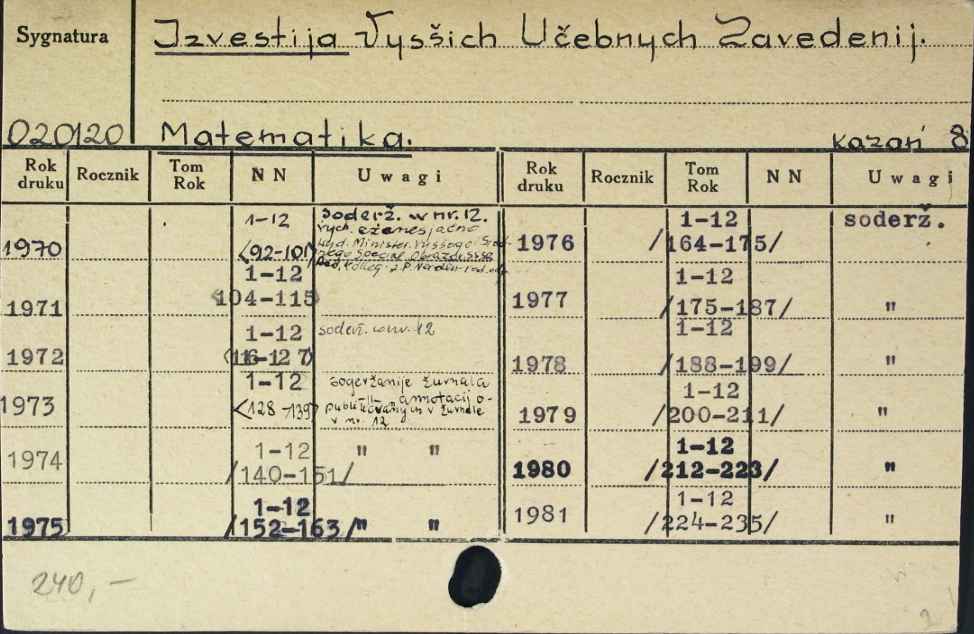 Sygnatura
Izvestija Vysšich Učebnych Zavedenij.
020120 Matematika. Kazań 8
Rok druku Rocznik Tom Rok NN Uwagi Rok druku Rocznik Tom Rok NN Uwagi
1970 1-12 <92-101> soderž. w nr. 12.
vych. ežemesjačno
Minister.
1971 1-12 104-115
1972 1-12 soderž. w nr. 12
1973 1-12 <128-139> žurnala
annotacij o-
v žurnale
v nr. 12
1974 1-12 /140-151/ " "
1975 1-12 /152-163/ " "
1976 1-12 /164-175/ soderž.
1977 1-12 /175-187/ "
1978 1-12 /188-199/ "
1979 1-12 /200-211/ "
1980 1-12 /212-223/ "
1981 1-12 /224-235/ "
240,-
2